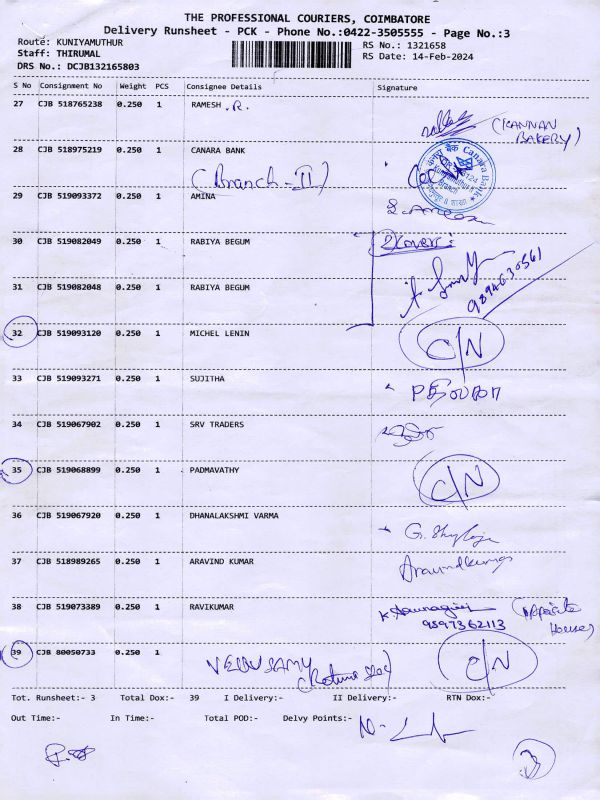 THE PROFESSIONAL COURIERS, COIMBATORE
Delivery Runsheet - PCK - Phone No.:0422-3505555 - Page No.:3
Route: KUNIYAMUTHUR
RS No.: 1321658
Staff: THIRUMAL
RS Date: 14-Feb-2024
DRS No.: DCJB132165803
S No Consignment No Weight PCS Consignee Details Signature
27 CJB 518765238 0.250 1 RAMESH .R.
(KANNAN
BAKERY)
28 CJB 518975219 0.250 1 CANARA BANK
(Branch-II)
Canara Bank
29 CJB 519093372 0.250 1 AMINA
30 CJB 519082049 0.250 1 RABIYA BEGUM
2 Covers:
31 CJB 519082048 0.250 1 RABIYA BEGUM
9894630561
32 CJB 519093120 0.250 1 MICHEL LENIN
C/N
33 CJB 519093271 0.250 1 SUJITHA
34 CJB 519067902 0.250 1 SRV TRADERS
35 CJB 519068899 0.250 1 PADMAVATHY
C/N
36 CJB 519067920 0.250 1 DHANALAKSHMI VARMA
G. Shylaja
37 CJB 518989265 0.250 1 ARAVIND KUMAR
Aravindkumar
38 CJB 519073389 0.250 1 RAVIKUMAR
(Opposite
9597362113 House)
39 CJB 80050733 0.250 1
VELUSAMY
C/N
Tot. Runsheet:- 3 Total Dox:- 39 I Delivery:- II Delivery:- RTN Dox:-
Out Time:- In Time:- Total POD:- Delvy Points:-
3